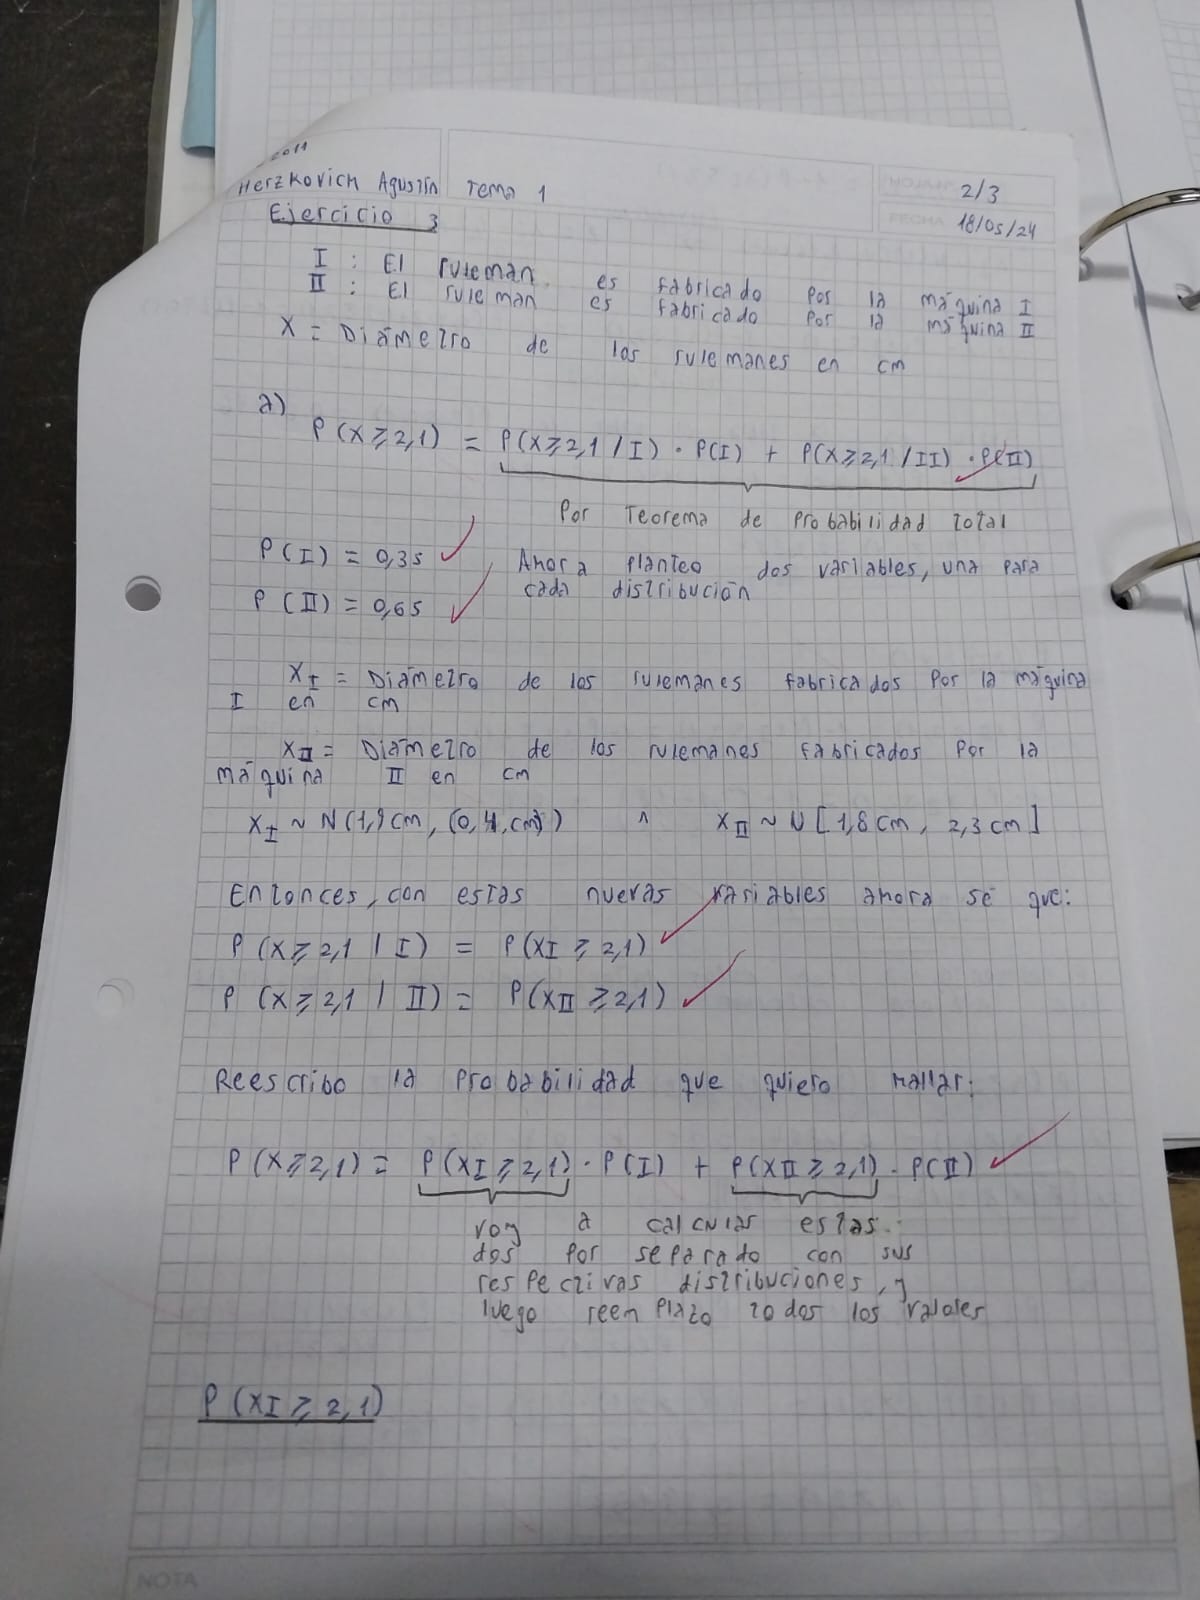 2011
Herzkovich Agustín Tema 1 2/3
FECHA 18/05/24
Ejercicio 3
I : El ruleman es fabricado por la máquina I
II : El ruleman es fabricado por la máquina II
X = Diámetro de los rulemanes en cm
a)
P(X ⩾ 2,1) = P(X ⩾ 2,1 / I) · P(I) + P(X ⩾ 2,1 / II) · P(II)
Por Teorema de Probabilidad Total
P(I) = 0,35
Ahora planteo dos variables, una para
cada distribución
P(II) = 0,65
XI = Diámetro de los rulemanes fabricados por la máquina
I en cm
XII = Diámetro de los rulemanes fabricados por la
máquina II en cm
XI ~ N(1,9cm, ) ∧ XII ~ U[1,8cm, 2,3cm]
Entonces, con estas nuevas variables ahora sé que:
P(X ⩾ 2,1 / I) = P(XI ⩾ 2,1)
P(X ⩾ 2,1 / II) = P(XII ⩾ 2,1)
Reescribo la probabilidad que quiero hallar:
P(X ⩾ 2,1) = P(XI ⩾ 2,1) · P(I) + P(XII ⩾ 2,1) · P(II)
voy a calcular estas
dos por separado con sus
respectivas distribuciones, y
luego reemplazo todos los valores
P(XI ⩾ 2,1)
NOTA